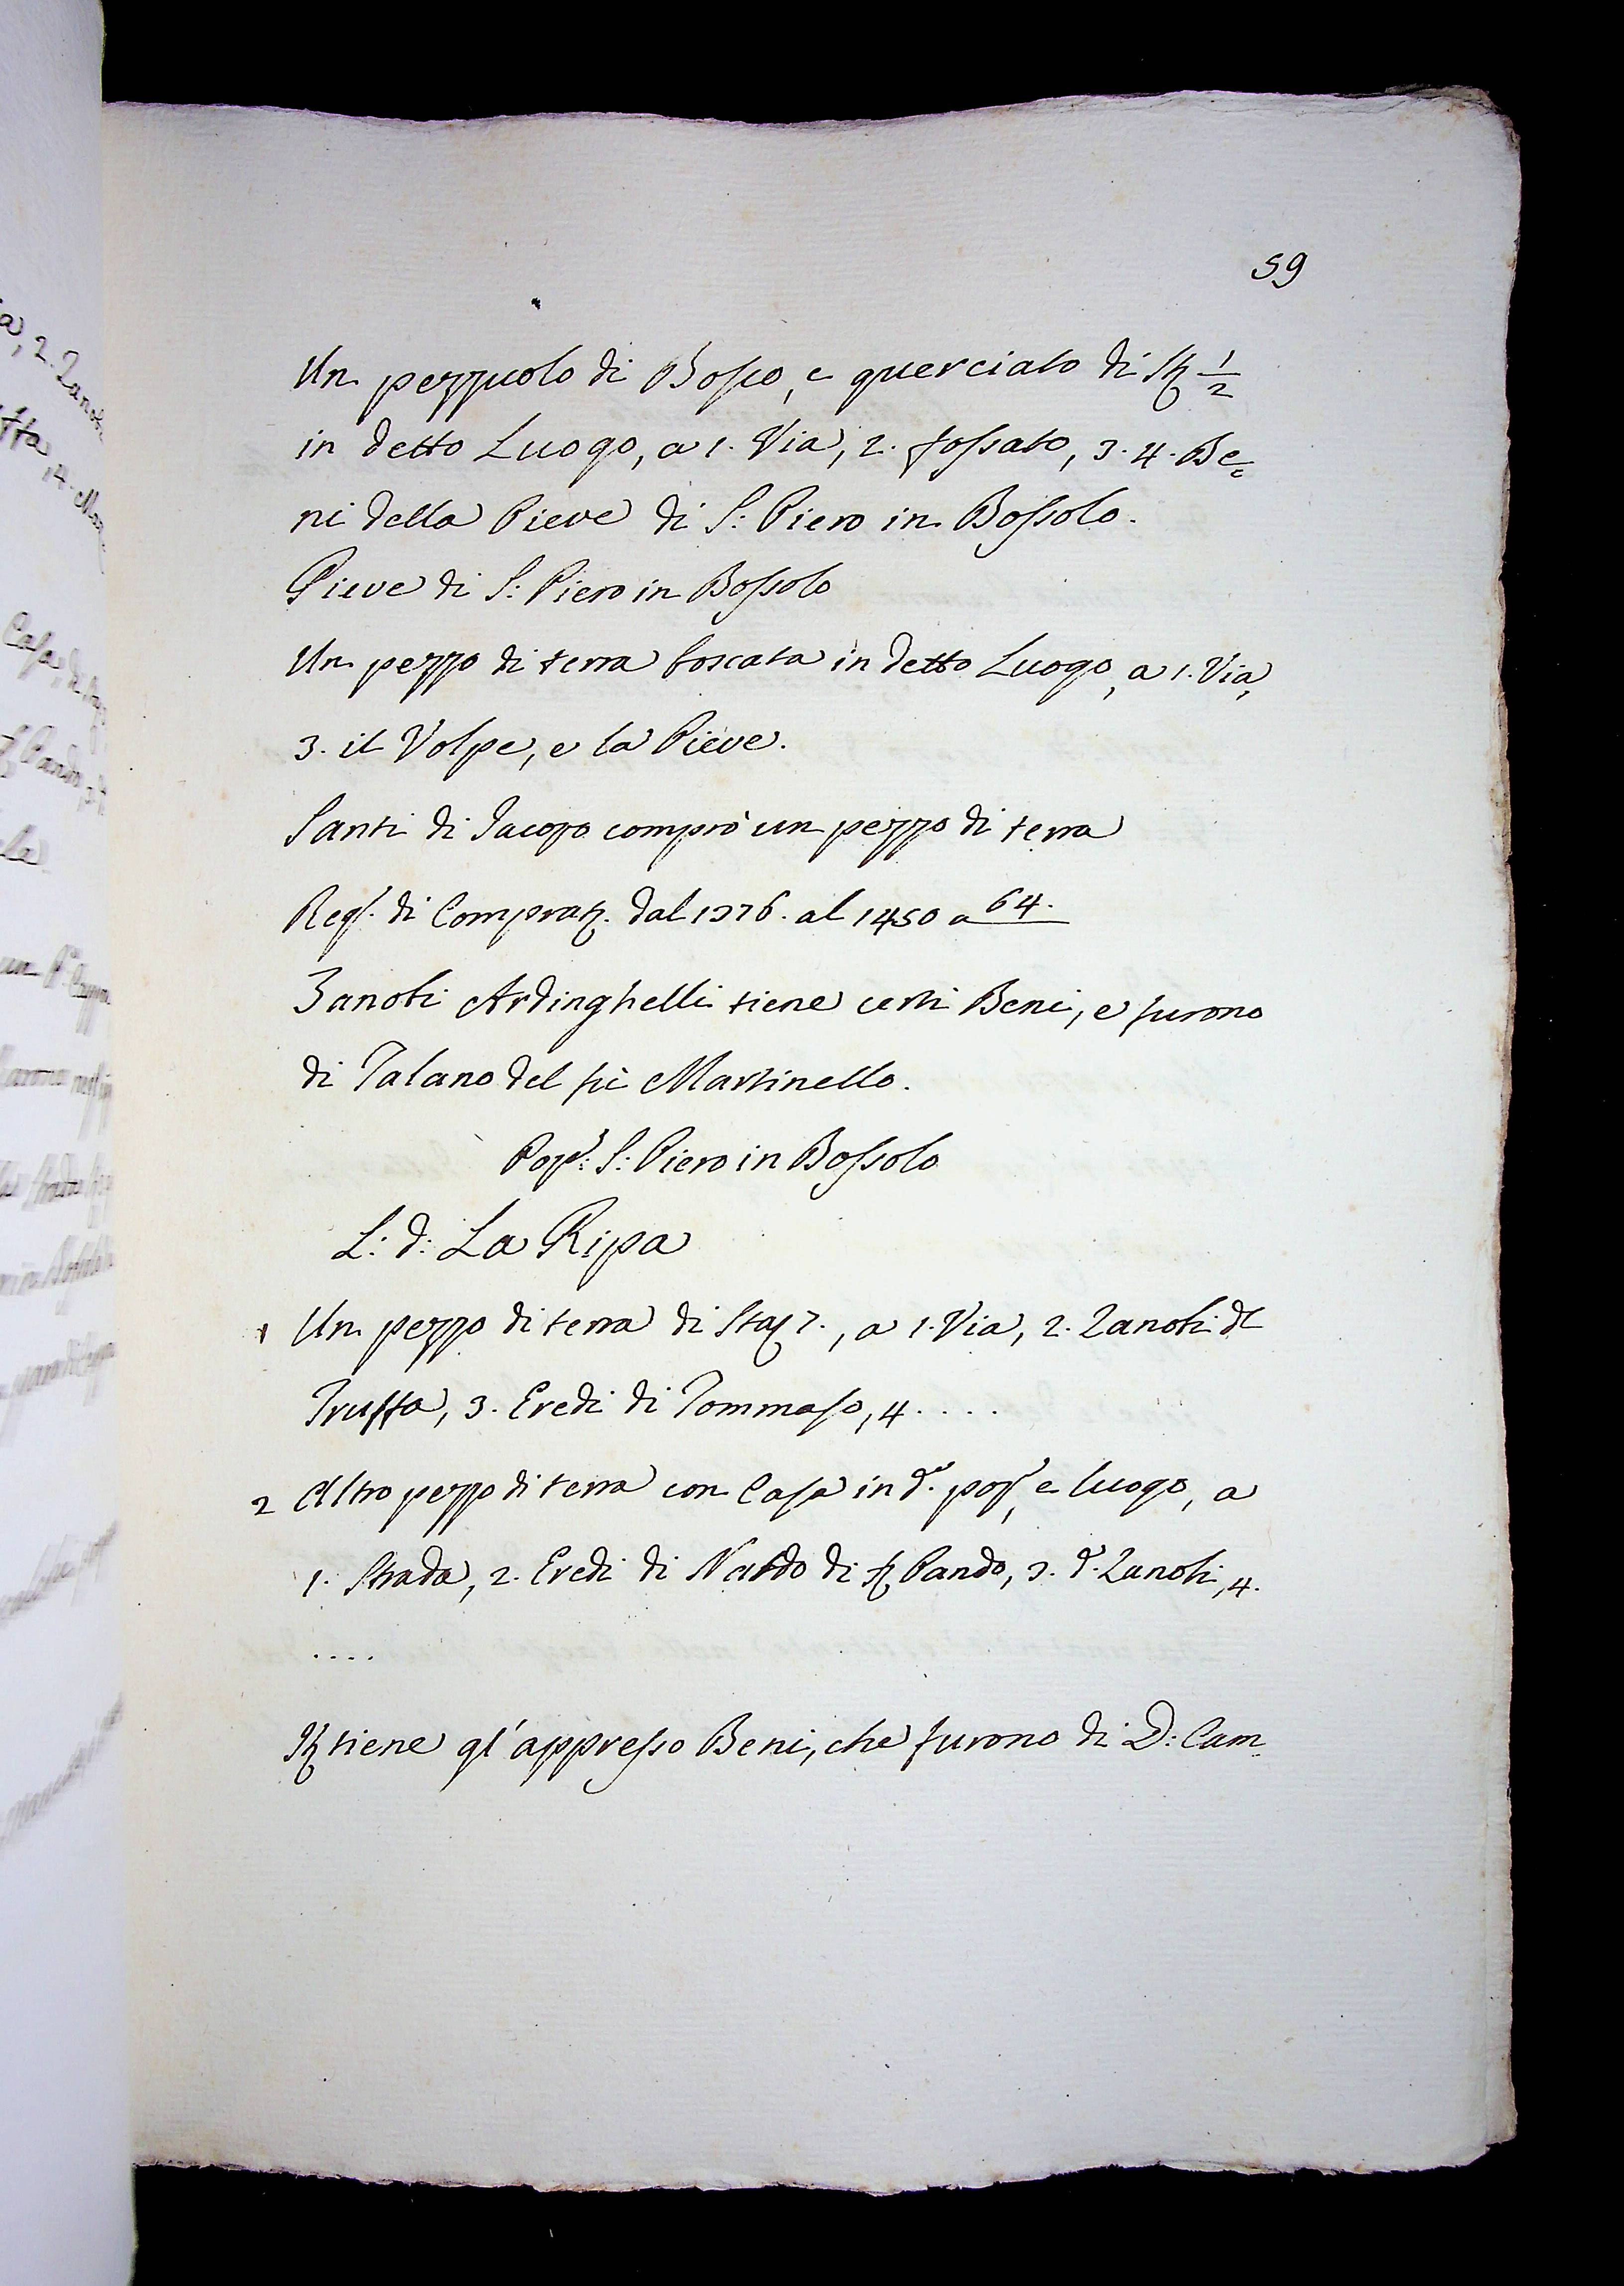 59
Un pezzuolo di Bosco, e querciato di St. 1/2
in detto Luogo, a 1. Via, 2. fossato, 3. 4. Be=
ni della Pieve di S: Piero in Bossolo.
Pieve di S: Piero in Bossolo
Un pezzo di terra boscata in detto Luogo, a 1. Via,
3. il Volpe, e la Pieve.
Santi di Jacopo comprò un pezzo di terra
Regs. di Compraz. dal 1376. al 1450 a 64.
Zanobi Ardinghelli tiene certi Beni, e furono
di Talano del fù Martinello.
Pop: S: Piero in Bossolo
L: d: La Ripa
1 Un pezzo di terra di Sta 7., a 1. Via, 2. Zanobi del
Truffa, 3. Eredi di Tommaso, 4. . . . .
2 Altro pezzo di terra con Casa in do. popo. e luogo, a
1. Strada, 2. Eredi di Nardo di Pando, 3. do. Zanobi, 4.
. . . .
tiene gl'appresso Beni, che furono di D: Cam=